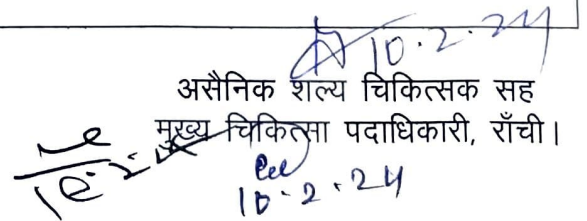 10.2.24
असैनिक शल्य चिकित्सक सह
मुख्य चिकित्सा पदाधिकारी, राँची।
10.2.24